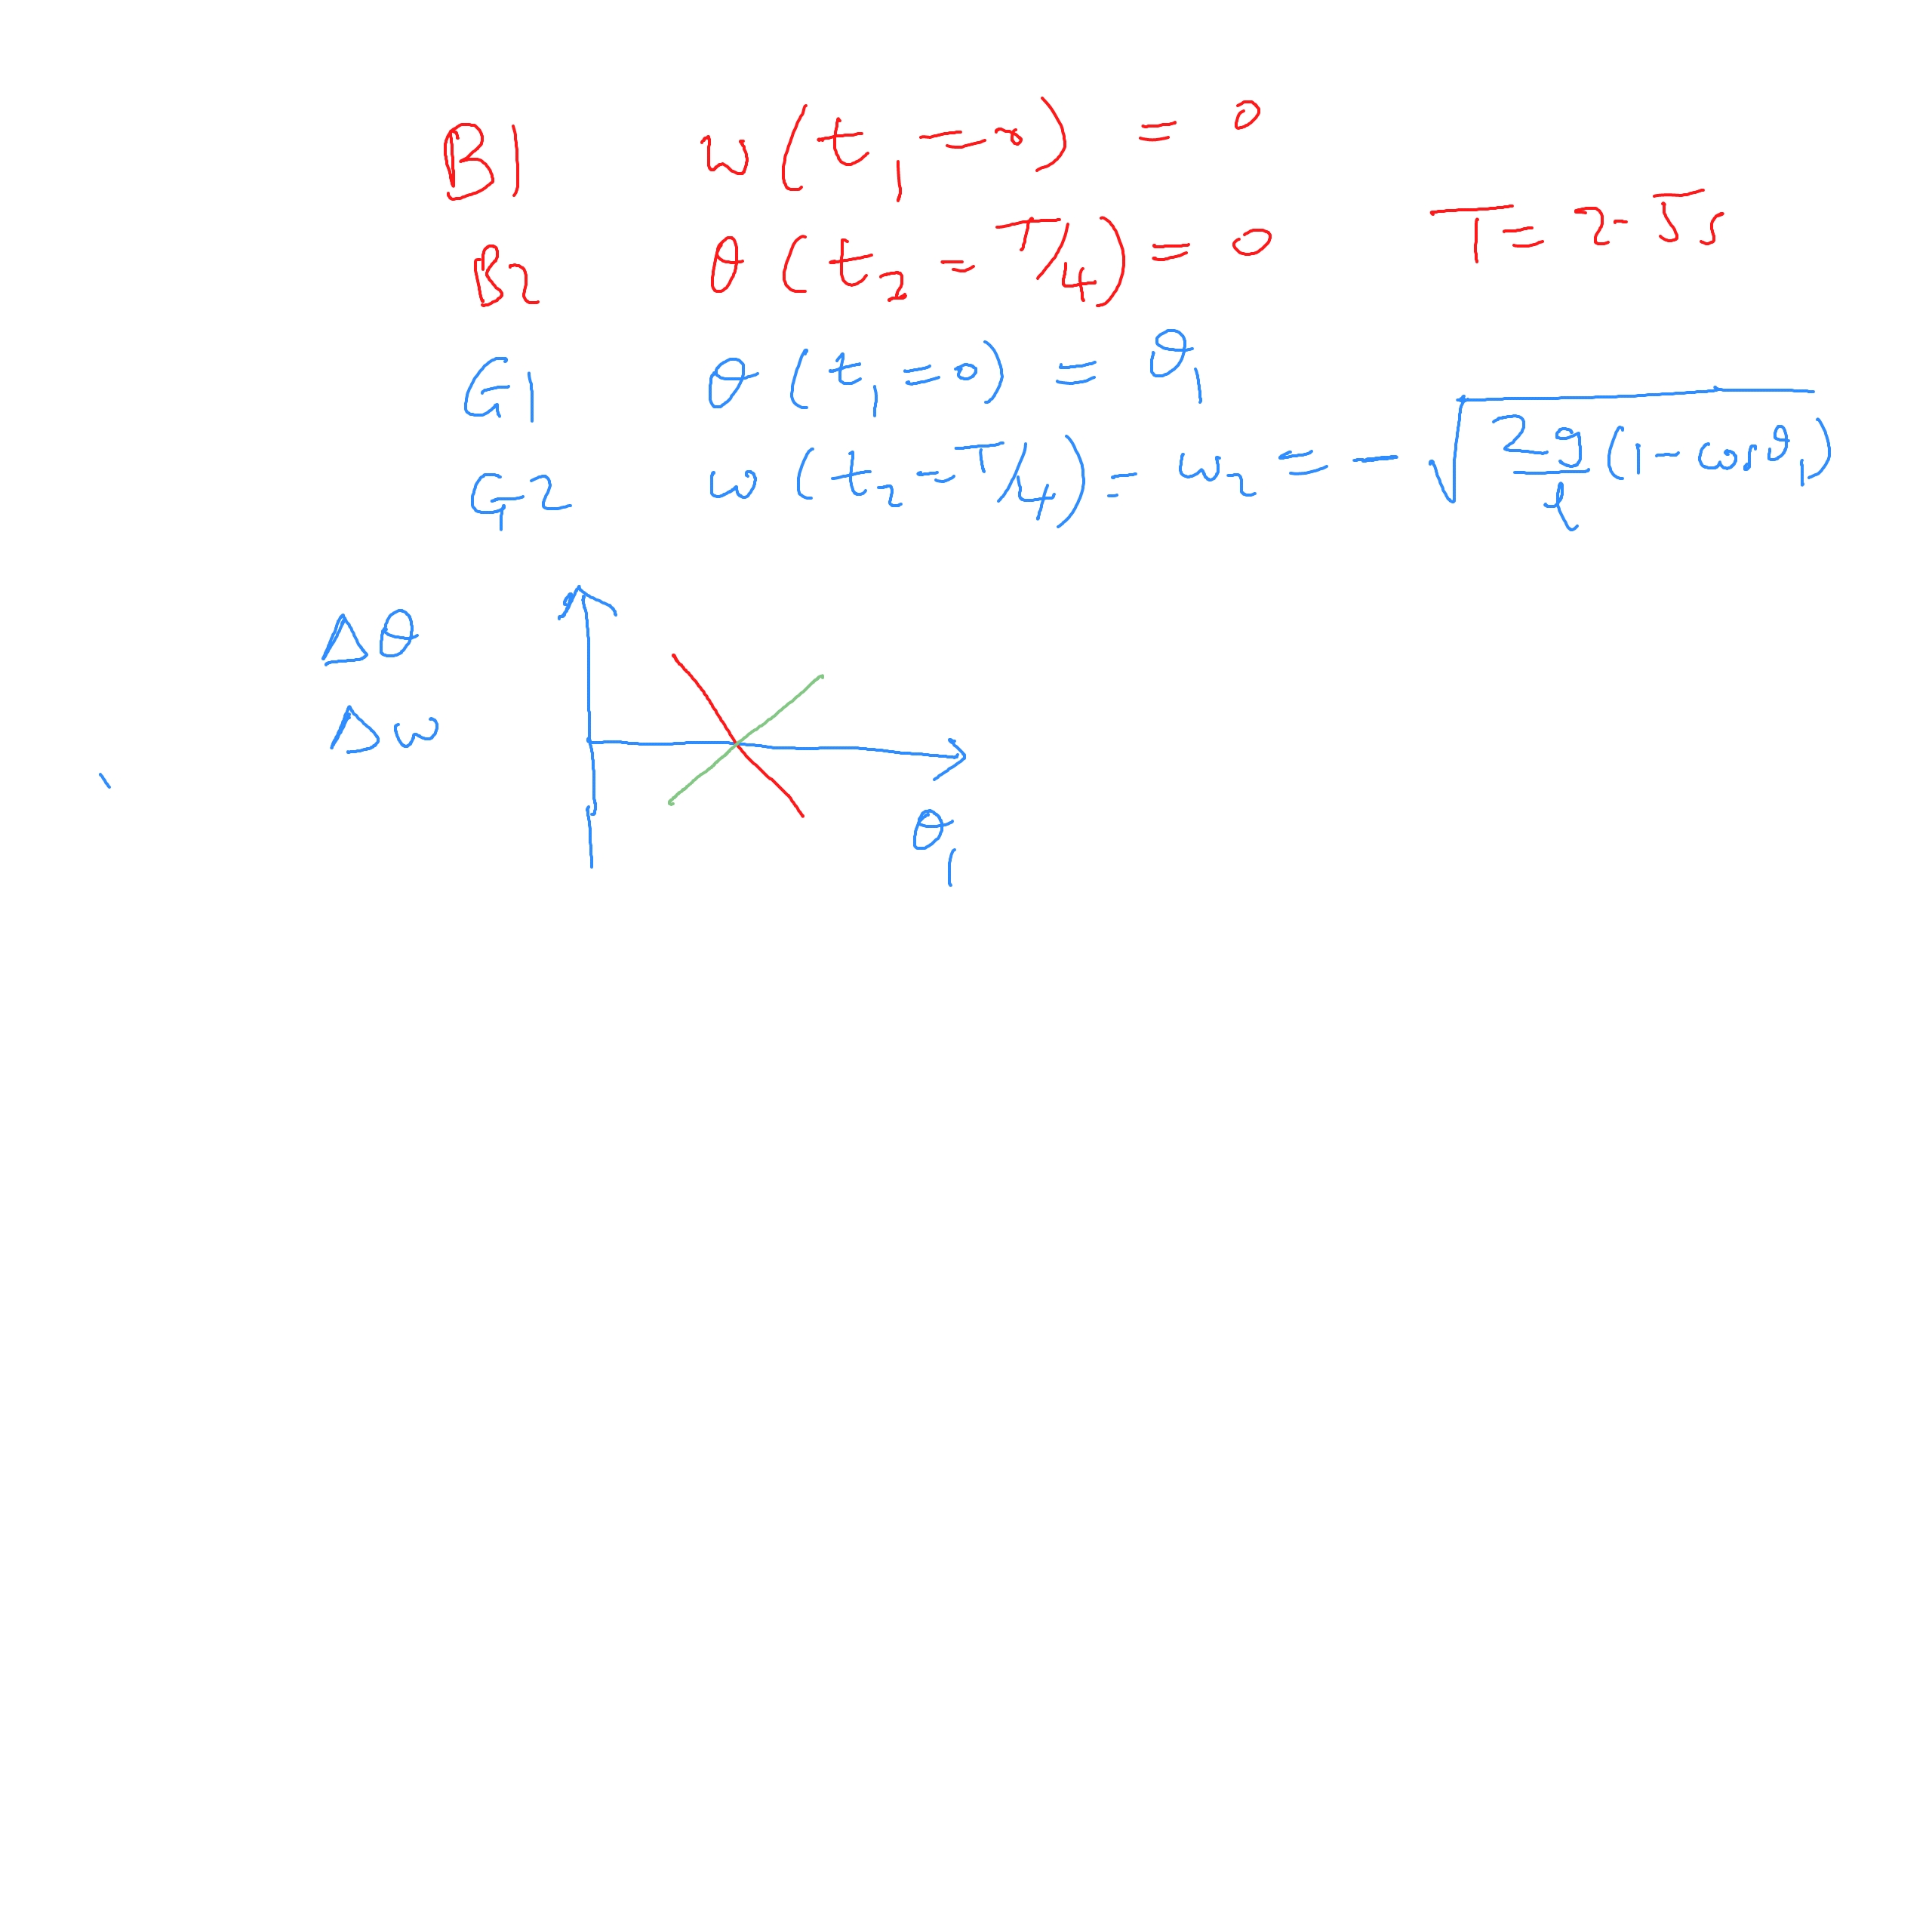 B1 ω(t₁=0) = 0
B2 θ(t₂=T/4)=0 T=2.5s
G1 θ(t₁=0) = θ₁
G2 ω(t₂=T/4)= ω₂ = -√(2g/l (1-cosθ₁))
Δθ
Δω
θ₁